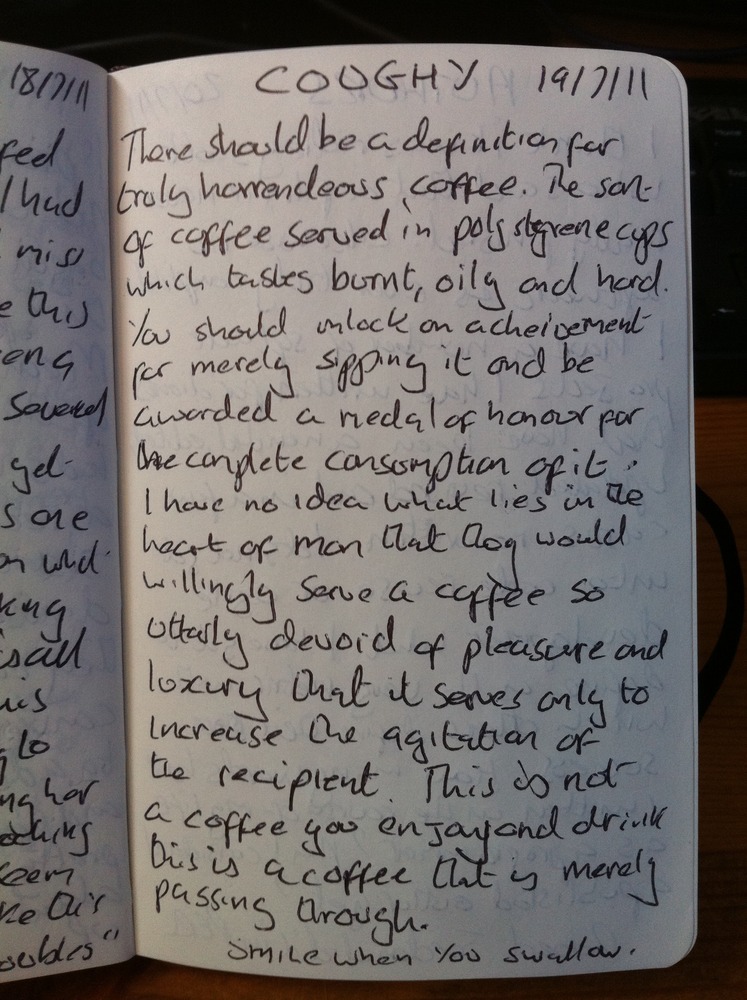 18/7/11
feed
I had
miss
e this
Several
get
s are
king
is all
to
ng her
seem
ke this
COUGHY 19/7/11
There should be a definition for
truly horrendeous coffee. The sort
of coffee served in polystyrene cups
which tastes burnt, oily and hard.
You should unlock an acheivement
for merely sipping it and be
awarded a medal of honour for
the complete consumption of it.
I have no idea what lies in the
heart of man that they would
willingly serve a coffee so
utterly devoid of pleasure and
luxury that it serves only to
increase the agitation of
the recipient. This is not
a coffee you enjoy and drink
this is a coffee that is merely
passing through.
Smile when you swallow.